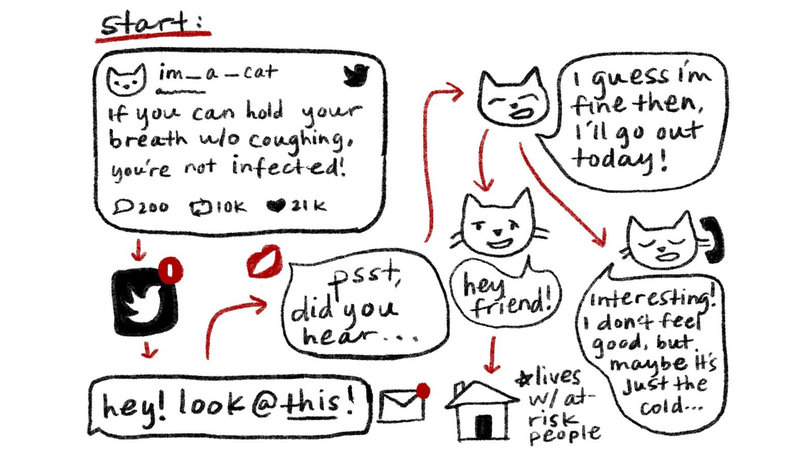 start:
im_a_cat
If you can hold your
breath w/o coughing,
you're not infected!
200 10K 21K
hey! look @ this!
psst,
did you
hear...
I guess i'm
fine then,
I'll go out
today!
hey
friend!
*lives
w/ at-
risk
people
interesting!
I don't feel
good, but
maybe it's
just the
cold...